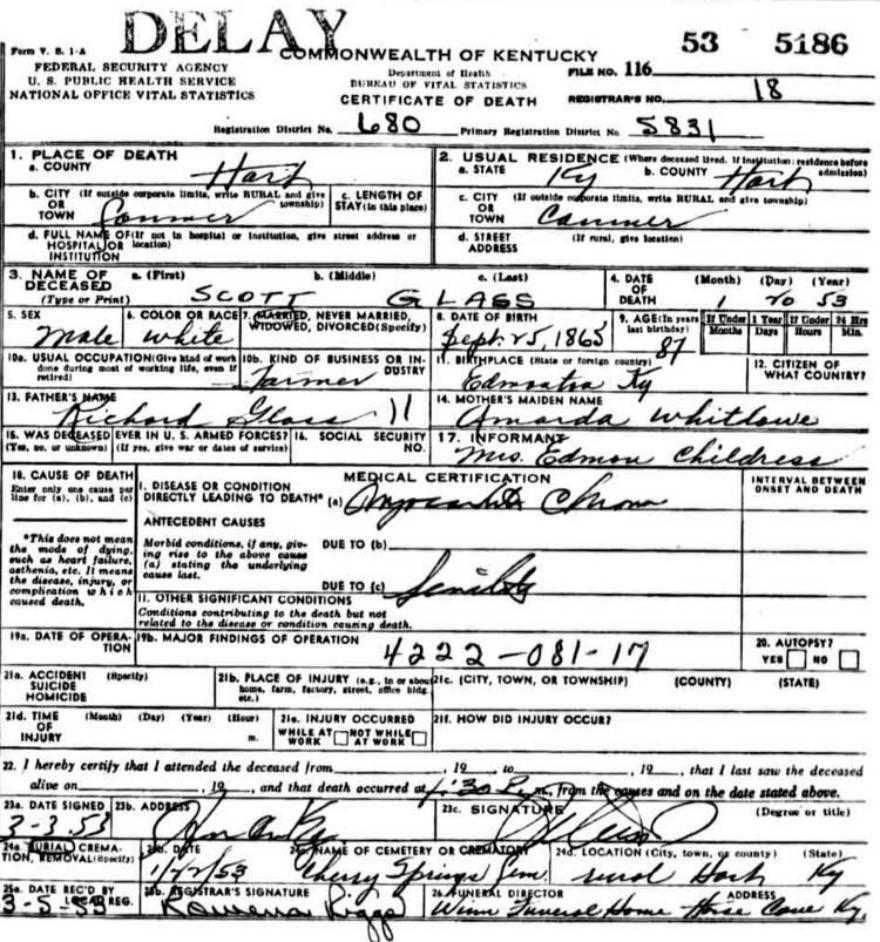 DELAY
53 5186
Form V. S. 1-A
FEDERAL SECURITY AGENCY
U. S. PUBLIC HEALTH SERVICE
NATIONAL OFFICE VITAL STATISTICS
COMMONWEALTH OF KENTUCKY
Department of Health
BUREAU OF VITAL STATISTICS
CERTIFICATE OF DEATH
FILE NO. 116
REGISTRAR'S NO. 18
Registration District No. 680 Primary Registration District No. 5831
1. PLACE OF DEATH
a. COUNTY Hart
2. USUAL RESIDENCE (Where deceased lived. If institution: residence before admission)
a. STATE Ky b. COUNTY Hart
b. CITY OR TOWN (If outside corporate limits, write RURAL and give township) Canmer
c. LENGTH OF STAY (in this place)
c. CITY OR TOWN (If outside corporate limits, write RURAL and give township) Canmer
d. FULL NAME OF HOSPITAL OR INSTITUTION (If not in hospital or institution, give street address or location)
d. STREET ADDRESS (If rural, give location)
3. NAME OF DECEASED (Type or Print) a. (First) b. (Middle) c. (Last)
SCOTT GLASS
4. DATE OF DEATH (Month) (Day) (Year)
1 20 53
5. SEX Male
6. COLOR OR RACE white
7. MARRIED, NEVER MARRIED, WIDOWED, DIVORCED (Specify)
8. DATE OF BIRTH Sept. 25, 1865
9. AGE (In years last birthday) 87
If Under 1 Year Months Days
If Under 24 Hrs Hours Min.
10a. USUAL OCCUPATION (Give kind of work done during most of working life, even if retired)
10b. KIND OF BUSINESS OR INDUSTRY
Farmer
11. BIRTHPLACE (State or foreign country)
Ky
12. CITIZEN OF WHAT COUNTRY?
13. FATHER'S NAME
Richard Glass 11
14. MOTHER'S MAIDEN NAME
Amanda Whitlowe
15. WAS DECEASED EVER IN U. S. ARMED FORCES? (Yes, no, or unknown) (If yes, give war or dates of service)
16. SOCIAL SECURITY NO.
17. INFORMANT
Mrs. Edmon Childress
18. CAUSE OF DEATH
Enter only one cause per line for (a), (b), and (c)
MEDICAL CERTIFICATION
INTERVAL BETWEEN ONSET AND DEATH
I. DISEASE OR CONDITION DIRECTLY LEADING TO DEATH* (a)
*This does not mean the mode of dying, such as heart failure, asthenia, etc. It means the disease, injury, or complication which caused death.
ANTECEDENT CAUSES
Morbid conditions, if any, giving rise to the above cause (a) stating the underlying cause last.
DUE TO (b)
DUE TO (c) Senility
II. OTHER SIGNIFICANT CONDITIONS
Conditions contributing to the death but not related to the disease or condition causing death.
19a. DATE OF OPERATION
19b. MAJOR FINDINGS OF OPERATION
4222-081-17
20. AUTOPSY?
YES NO
21a. ACCIDENT SUICIDE HOMICIDE (Specify)
21b. PLACE OF INJURY (e.g., in or about home, farm, factory, street, office bldg. etc.)
21c. (CITY, TOWN, OR TOWNSHIP) (COUNTY) (STATE)
21d. TIME OF INJURY (Month) (Day) (Year) (Hour) m.
21e. INJURY OCCURRED
WHILE AT WORK NOT WHILE AT WORK
21f. HOW DID INJURY OCCUR?
22. I hereby certify that I attended the deceased from , 19 to , 19 , that I last saw the deceased
alive on , 19 , and that death occurred at 1:30 P. m., from the causes and on the date stated above.
23a. DATE SIGNED 3-3-53
23b. ADDRESS
23c. SIGNATURE (Degree or title)
24a. BURIAL, CREMATION, REMOVAL (Specify)
24b. DATE 1/22/53
24c. NAME OF CEMETERY OR CREMATORY
Cherry Springs Cem.
24d. LOCATION (City, town, or county) (State)
rural Hart Ky
25a. DATE REC'D BY LOCAL REG.
3-5-53
25b. REGISTRAR'S SIGNATURE
Rowena Riggs
26. FUNERAL DIRECTOR ADDRESS
Winn Funeral Home Horse Cave Ky.